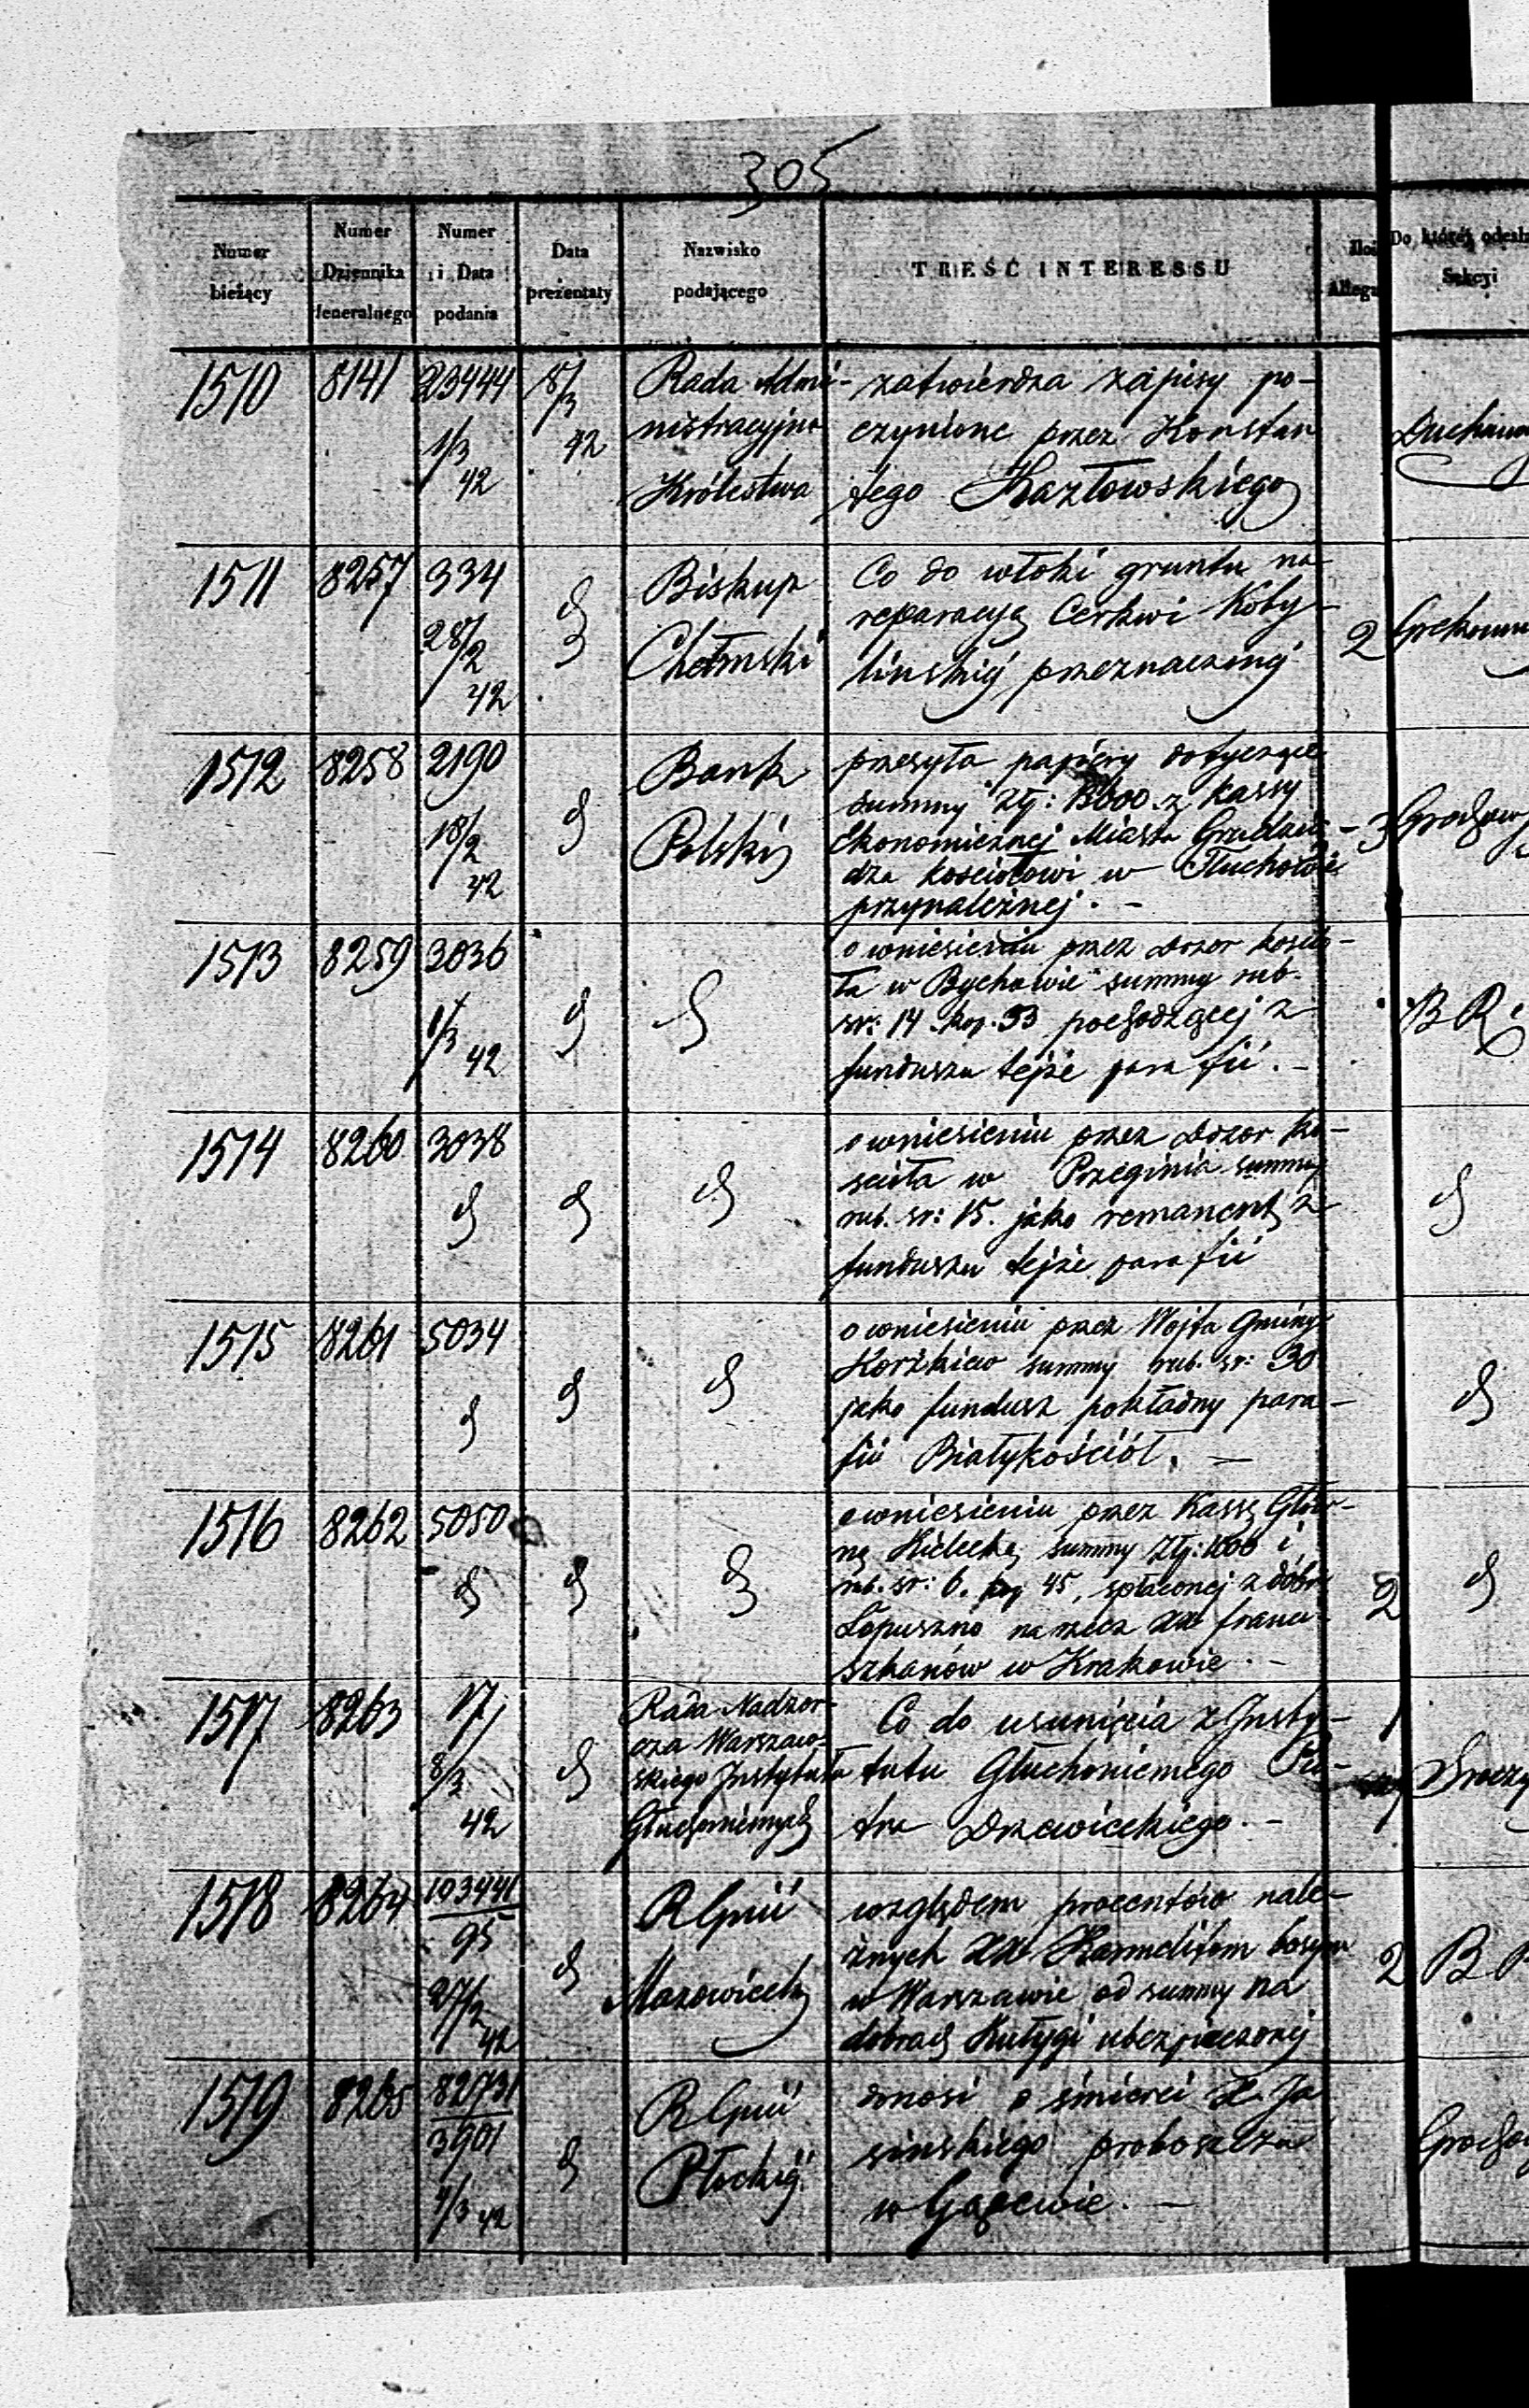 305
Numer bieżący
Numer Dziennika Jeneralnego
Numer i Data podania
Data prezentaty
Nazwisko podającego
TREŚĆ INTERESSU
Do której odesłan Sekcyi
1510
8141
23444
1/3
42
8/3
42
Rada Admi-
nistracyjna
Królestwa
zatwierdza zapisy po-
czynione przez Konstan
tego Kazłowskiego
1511
8257
334
28/2
42
Biskup
Chełmski
Co do włóki gruntu na
reparacyą Cerkwi Koby-
lińskiej przeznaczonej
2
1512
8258
2190
18/2
42
Bank
Polski
przesyła papiery dotyczące
summy Złp: z kassy
Ekonomicznej Miasta
dza kościołowi w Tłuchowie
przynależnej. -
3
1513
8259
3036
1/3
42
o wniesieniu przez dozor kościo-
ła w Bychawie summy rub.
sr: 14 kop. 53 pochodzącej z
funduszu tejże parafii. -
B R
1514
8260
3038
o wniesieniu przez dozor ko-
scioła w Przeginia summy
rub. sr: 15. jako remanent z
funduszu tejże parafii
1515
8261
5034
o wniesieniu przez Wójta Gminy
Korzkiew summy rub. sr: 30
jako fundusz pokładny para-
fii Białykościół. -
1516
8262
5050
o wniesieniu przez Kassę Głów-
ną Kielecką summy Złp: 1000 i
rub. sr: 6. kop 45, spłaconej z dóbr
Łopuszno na rzecz XX franci-
szkanów w Krakowie. -
2
1517
8263
17/
8/3
42
Rada Nadzor-
cza Warszaw-
skiego Instytutu
Głuchoniemych
Co do usunięcia z Insty-
tutu Głuchoniemego Pio-
tra Drzewieckiego. -
1518
8264
103441
95
27/2
42
R Gnii
Mazowieck
względem procentów nale-
żnych XX Karmelitom bosym
w Warszawie od summy na
dobrach Kutygi ubezpieczonej
2
1519
8265
82731
3901
1/3 42
R Gnii
Płockiej.
donosi o śmierci X. Ja
sińskiego proboszcza
w Gąsewie. -